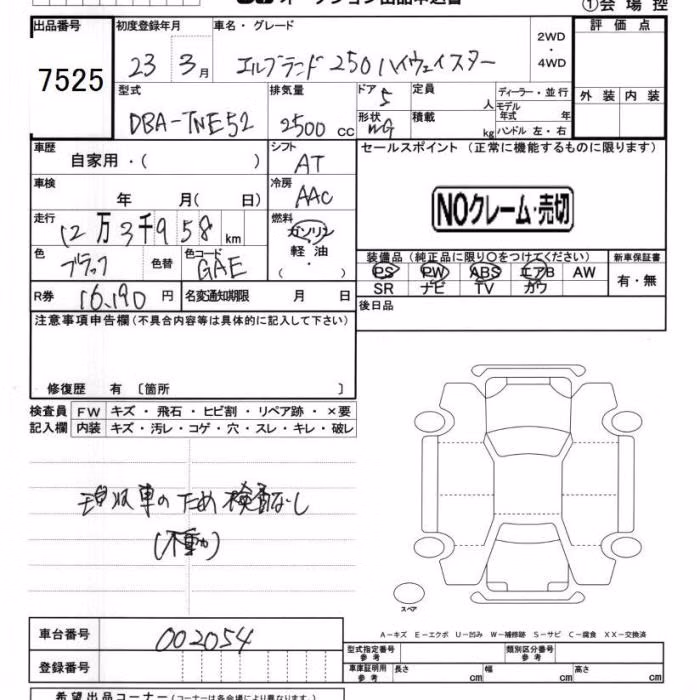 ①会場控
出品番号 初度登録年月 車名・グレード 評価点
7525 23 3月 エルグランド250ハイウェイスター 2WD・4WD
型式 排気量 ドア 定員 ディーラー・並行 外装 内装
DBA-TNE52 2500 cc 5 人 モデル年式 年
形状 積載 kg ハンドル 左・右
車歴 自家用・( ) シフト AT セールスポイント (正常に機能するものに限ります)
車検 年 月( 日) 冷房 AAC
NOクレーム・売切
走行 12万3千958 km 燃料 ガソリン
軽油
・( )
色 ブラック 色替 色コード GAE
装備品(純正品に限り○をつけてください) 新車保証書
PS PW ABS エアB AW 有・無
SR ナビ TV カワ
R券 16,190 円 名変通知期限 月 日 後日品
注意事項申告欄(不具合内容等は具体的に記入して下さい)
修復歴 有 〔箇所 〕
検査員 FW キズ・飛石・ヒビ割・リペア跡・×要
記入欄 内装 キズ・汚レ・コゲ・穴・スレ・キレ・破レ
現収車のため検査なし
(不動)
スペア
A-キズ E-エクボ U-凹み W-補修跡 S-サビ C-腐食 XX-交換済
車台番号 002054
型式指定番号 参考 類別区分番号 参考
登録番号 車庫証明用 参考 長さ cm 幅 cm 高さ cm
希望出品コーナー(コーナーは各会場により異なります)